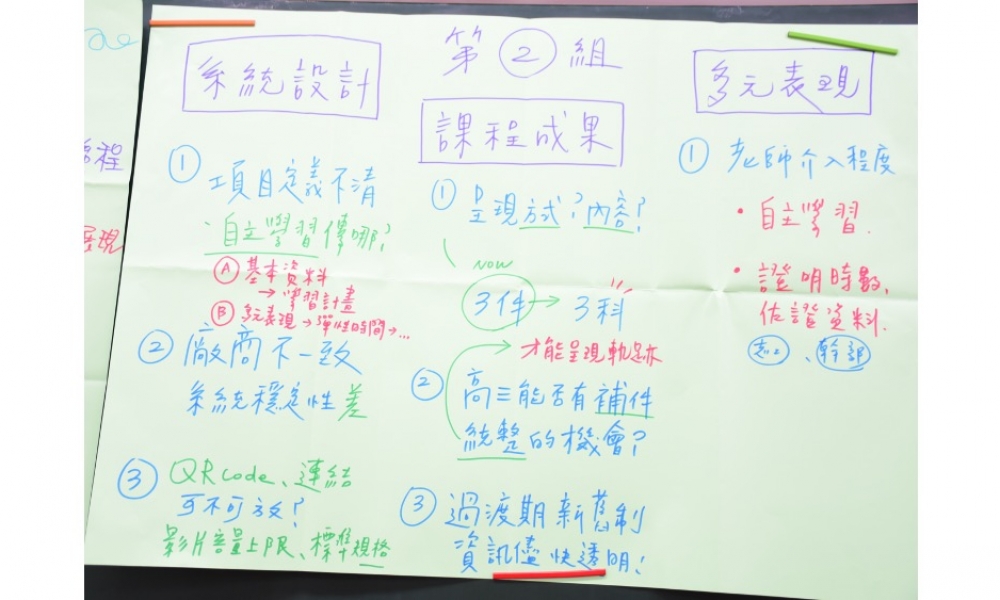 第②組
系統設計
① 項目定義不清
·自主學習傳哪?
Ⓐ 基本資料
→ 學習計畫
Ⓑ 多元表現→彈性時間→...
② 廠商不一致
系統穩定性差
③ QR code、連結
可不可放?
影片容量上限、標準規格
課程成果
① 呈現方式?內容?
NOW
3件→3科
才能呈現軌跡
② 高三能否有補件
統整的機會?
③ 過渡期新舊制
資訊儘快透明!
多元表現
① 老師介入程度
·自主學習.
·證明時數,
佐證資料.
志工、幹部
程
展現